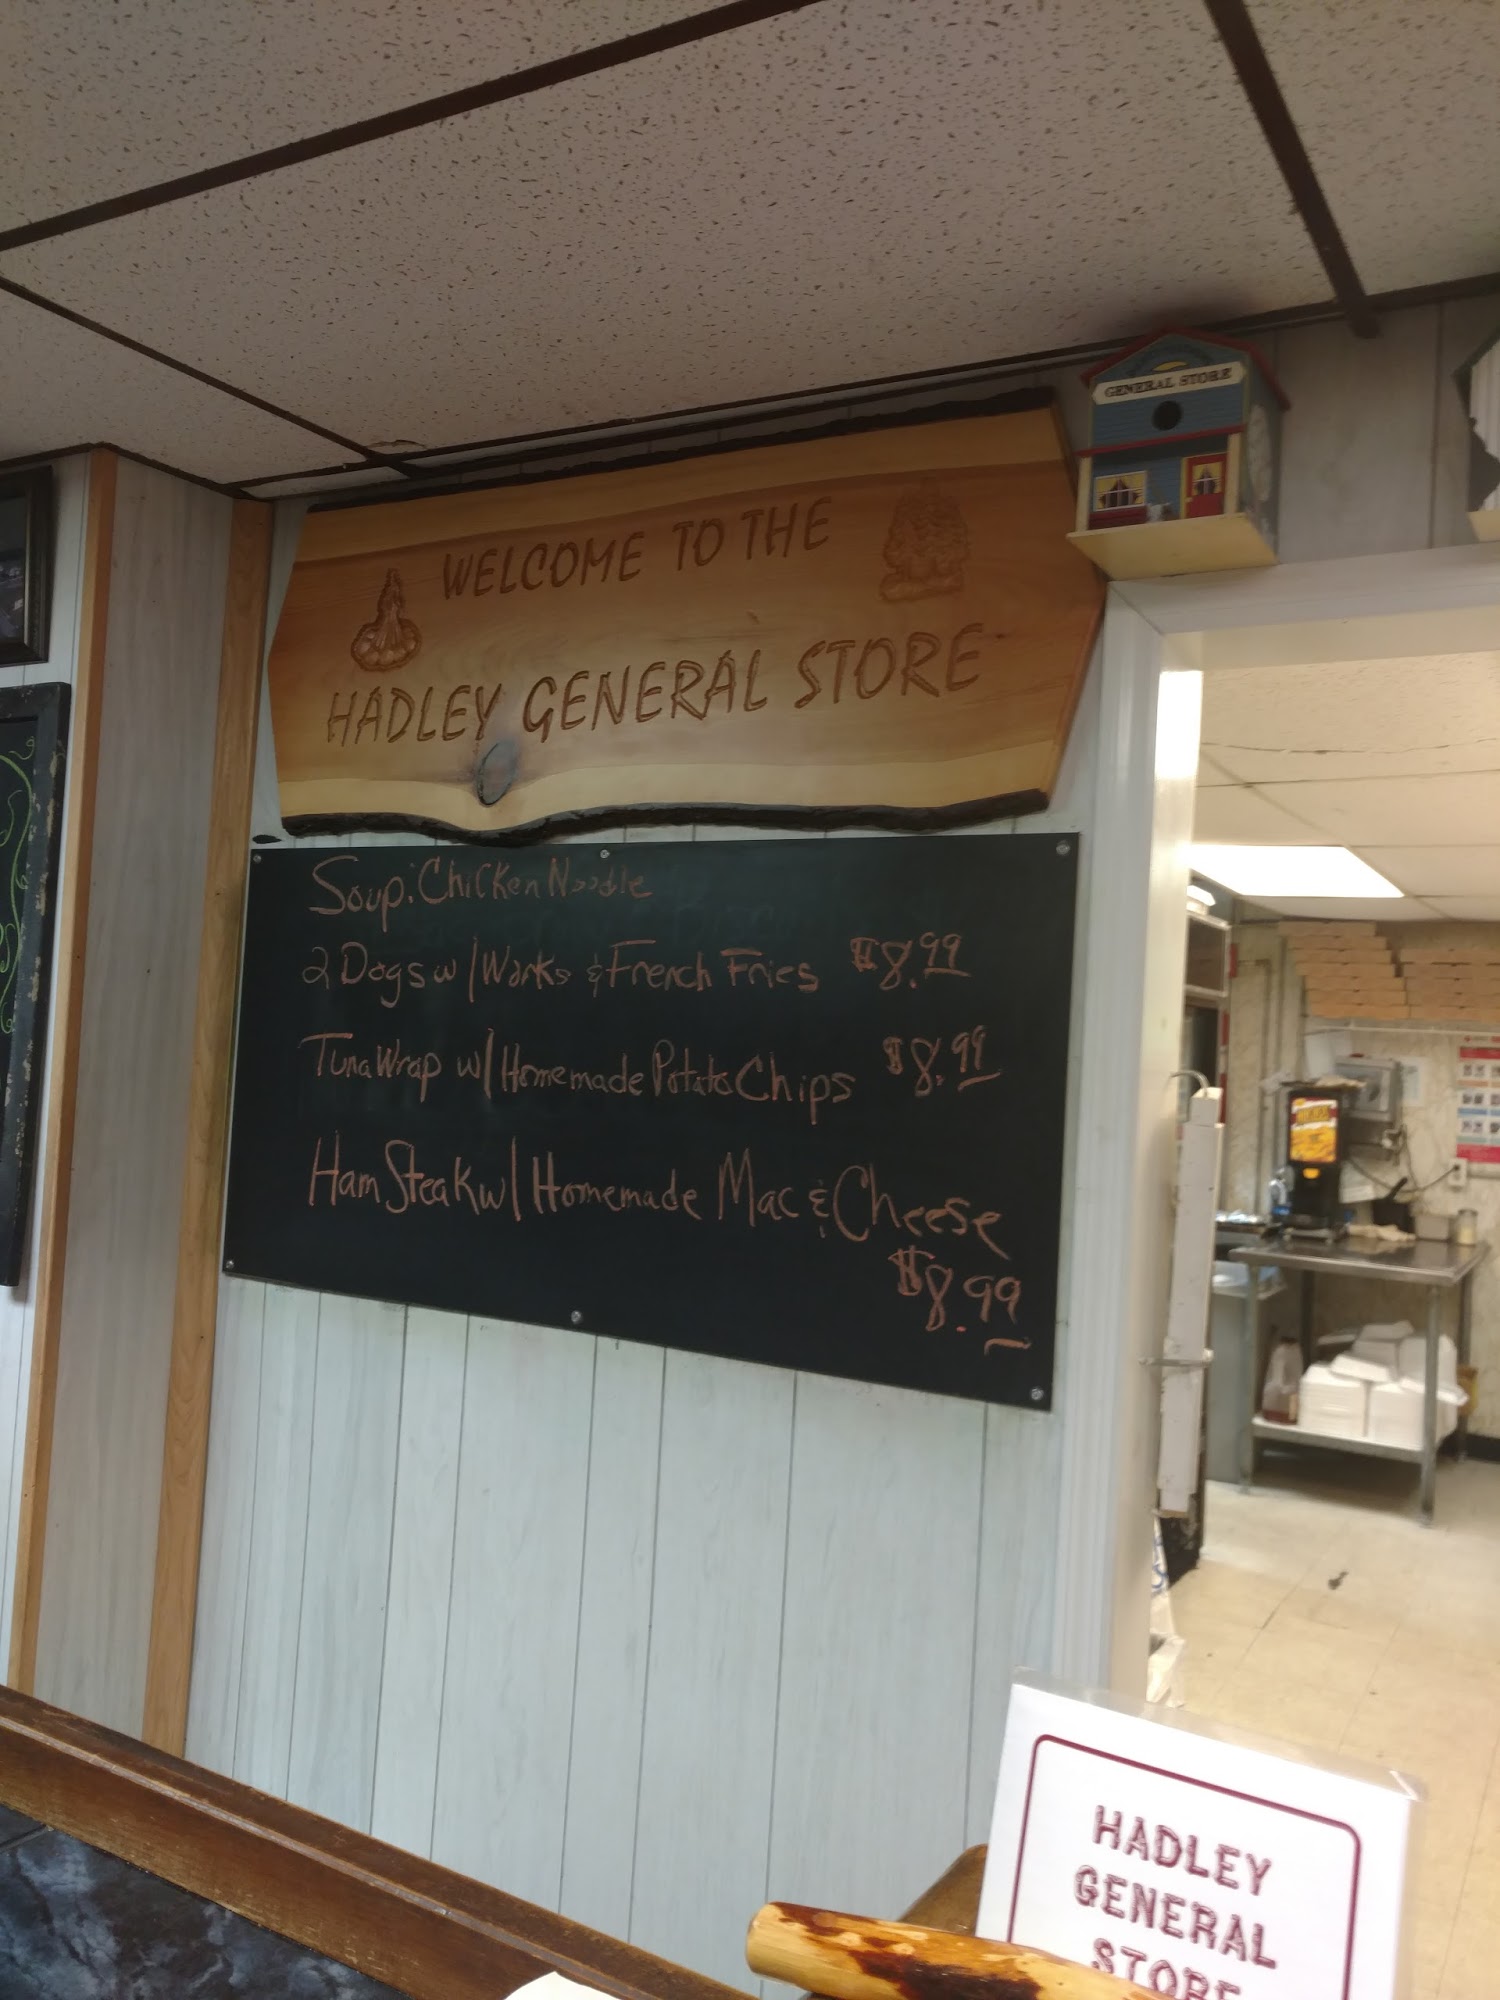 GENERAL STORE
WELCOME TO THE
HADLEY GENERAL STORE
Soup: Chicken Noodle
2 Dogs w/Works & French Fries $8.99
Tuna Wrap w/Homemade Potato Chips $8.99
Ham Steak w/Homemade Mac & Cheese
$8.99
HADLEY
GENERAL
STORE